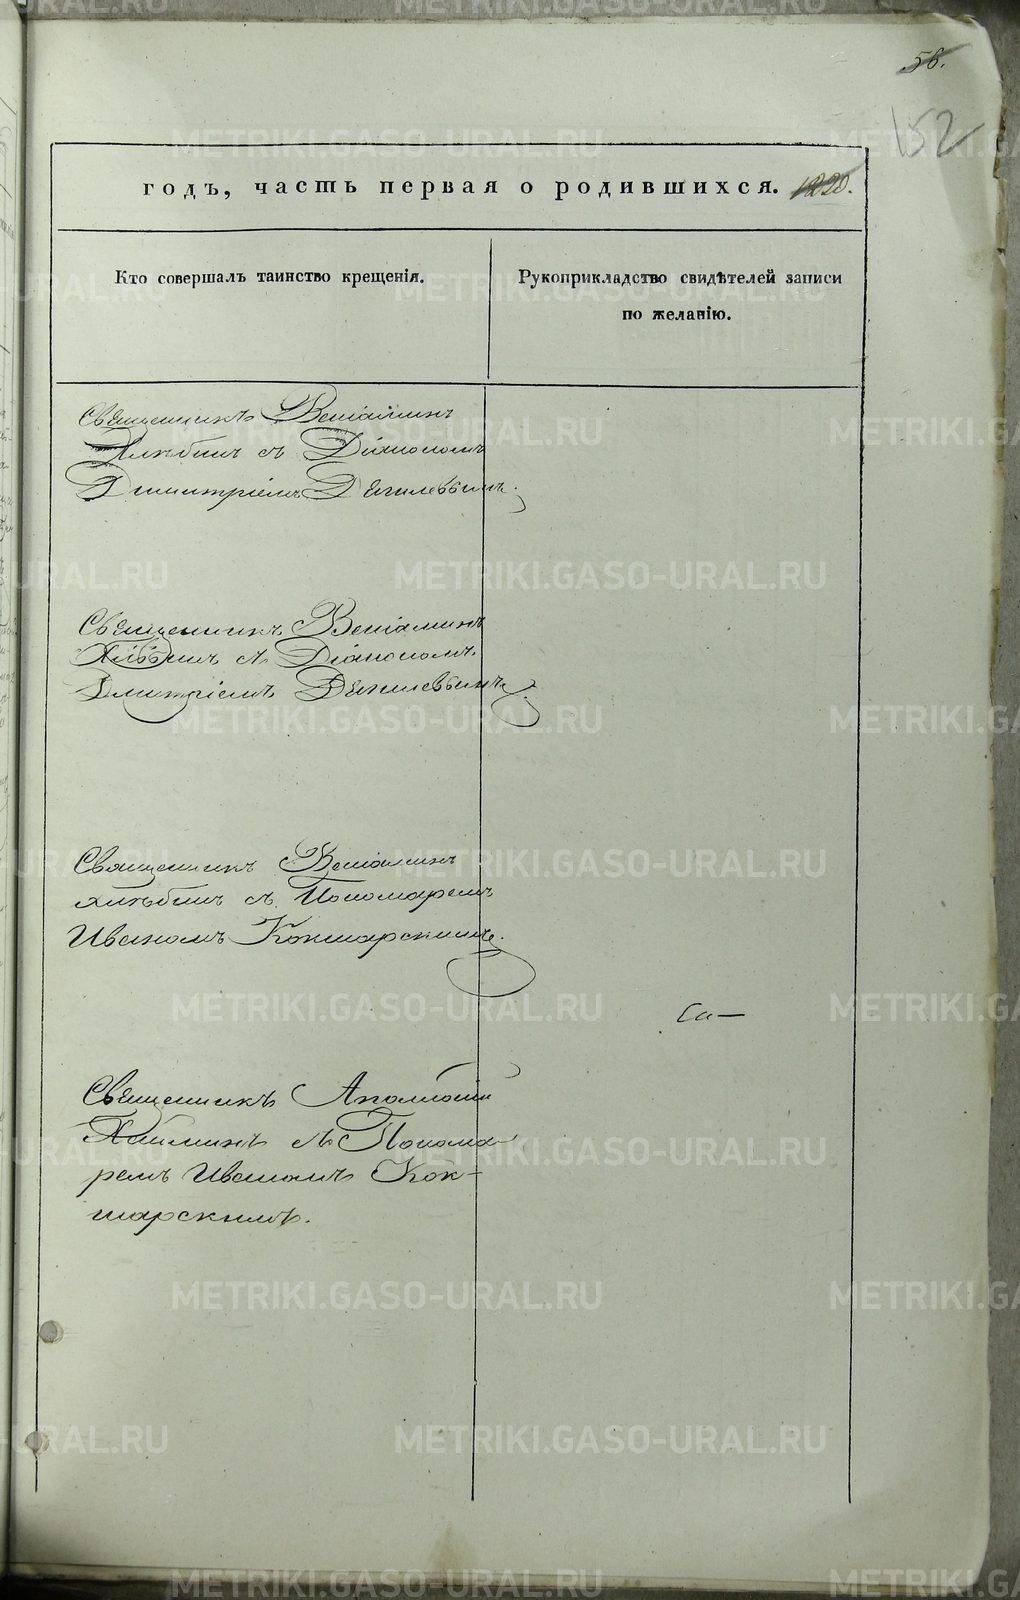 58.
152
годъ, часть первая о родившихся.
Кто совершалъ таинство крещенія.
Рукоприкладство свидѣтелей записи
по желанію.
Священникъ Веніаминъ
Хлѣбинъ съ Діакономъ
Димитріемъ Дягилевымъ.
Священникъ Веніаминъ
Хлѣбинъ съ Діакономъ
Димитріемъ Дягилевымъ
Священникъ Веніаминъ
Хлѣбинъ съ Пономаремъ
Иваномъ Кокшарскимъ.
Священникъ
съ Понома-
ремъ Иваномъ Кок-
шарскимъ.
METRIKI.GASO-URAL.RU